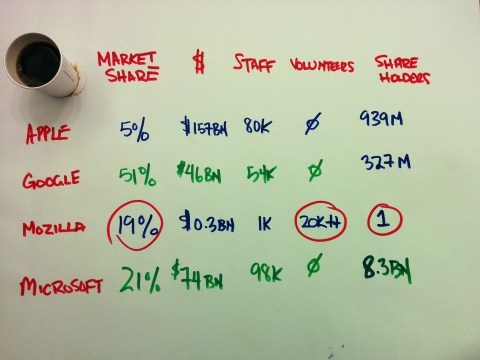 MARKET SHARE $ STAFF VOLUNTEERS SHARE HOLDERS
APPLE 5% $157BN 80K Ø 939M
GOOGLE 51% $46BN 54K Ø 327M
MOZILLA 19% $0.3BN 1K 20K++ 1
MICROSOFT 21% $74BN 98K Ø 8.3BN